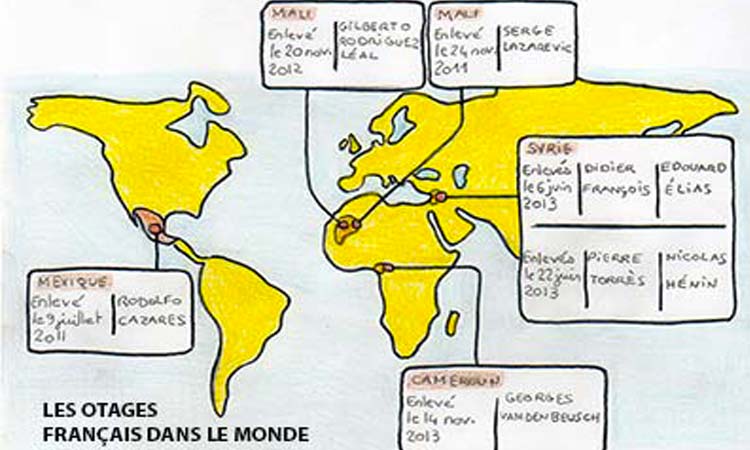 MALI
Enlevé
le 20 nov.
2012
GILBERTO
RODRIGUEZ
LÉAL
MALI
Enlevé
le 24 nov.
2011
SERGE
LAZAREVIC
SYRIE
Enlevés
le 6 juin
2013
DIDIER
FRANÇOIS
EDOUARD
ÉLIAS
Enlevés
le 22 juin
2013
PIERRE
TORRÈS
NICOLAS
HÉNIN
MEXIQUE
Enlevé
le 9 juillet
2011
RODOLFO
CAZARES
CAMEROUN
Enlevé
le 14 nov.
2013
GEORGES
VANDENBEUSCH
LES OTAGES
FRANÇAIS DANS LE MONDE